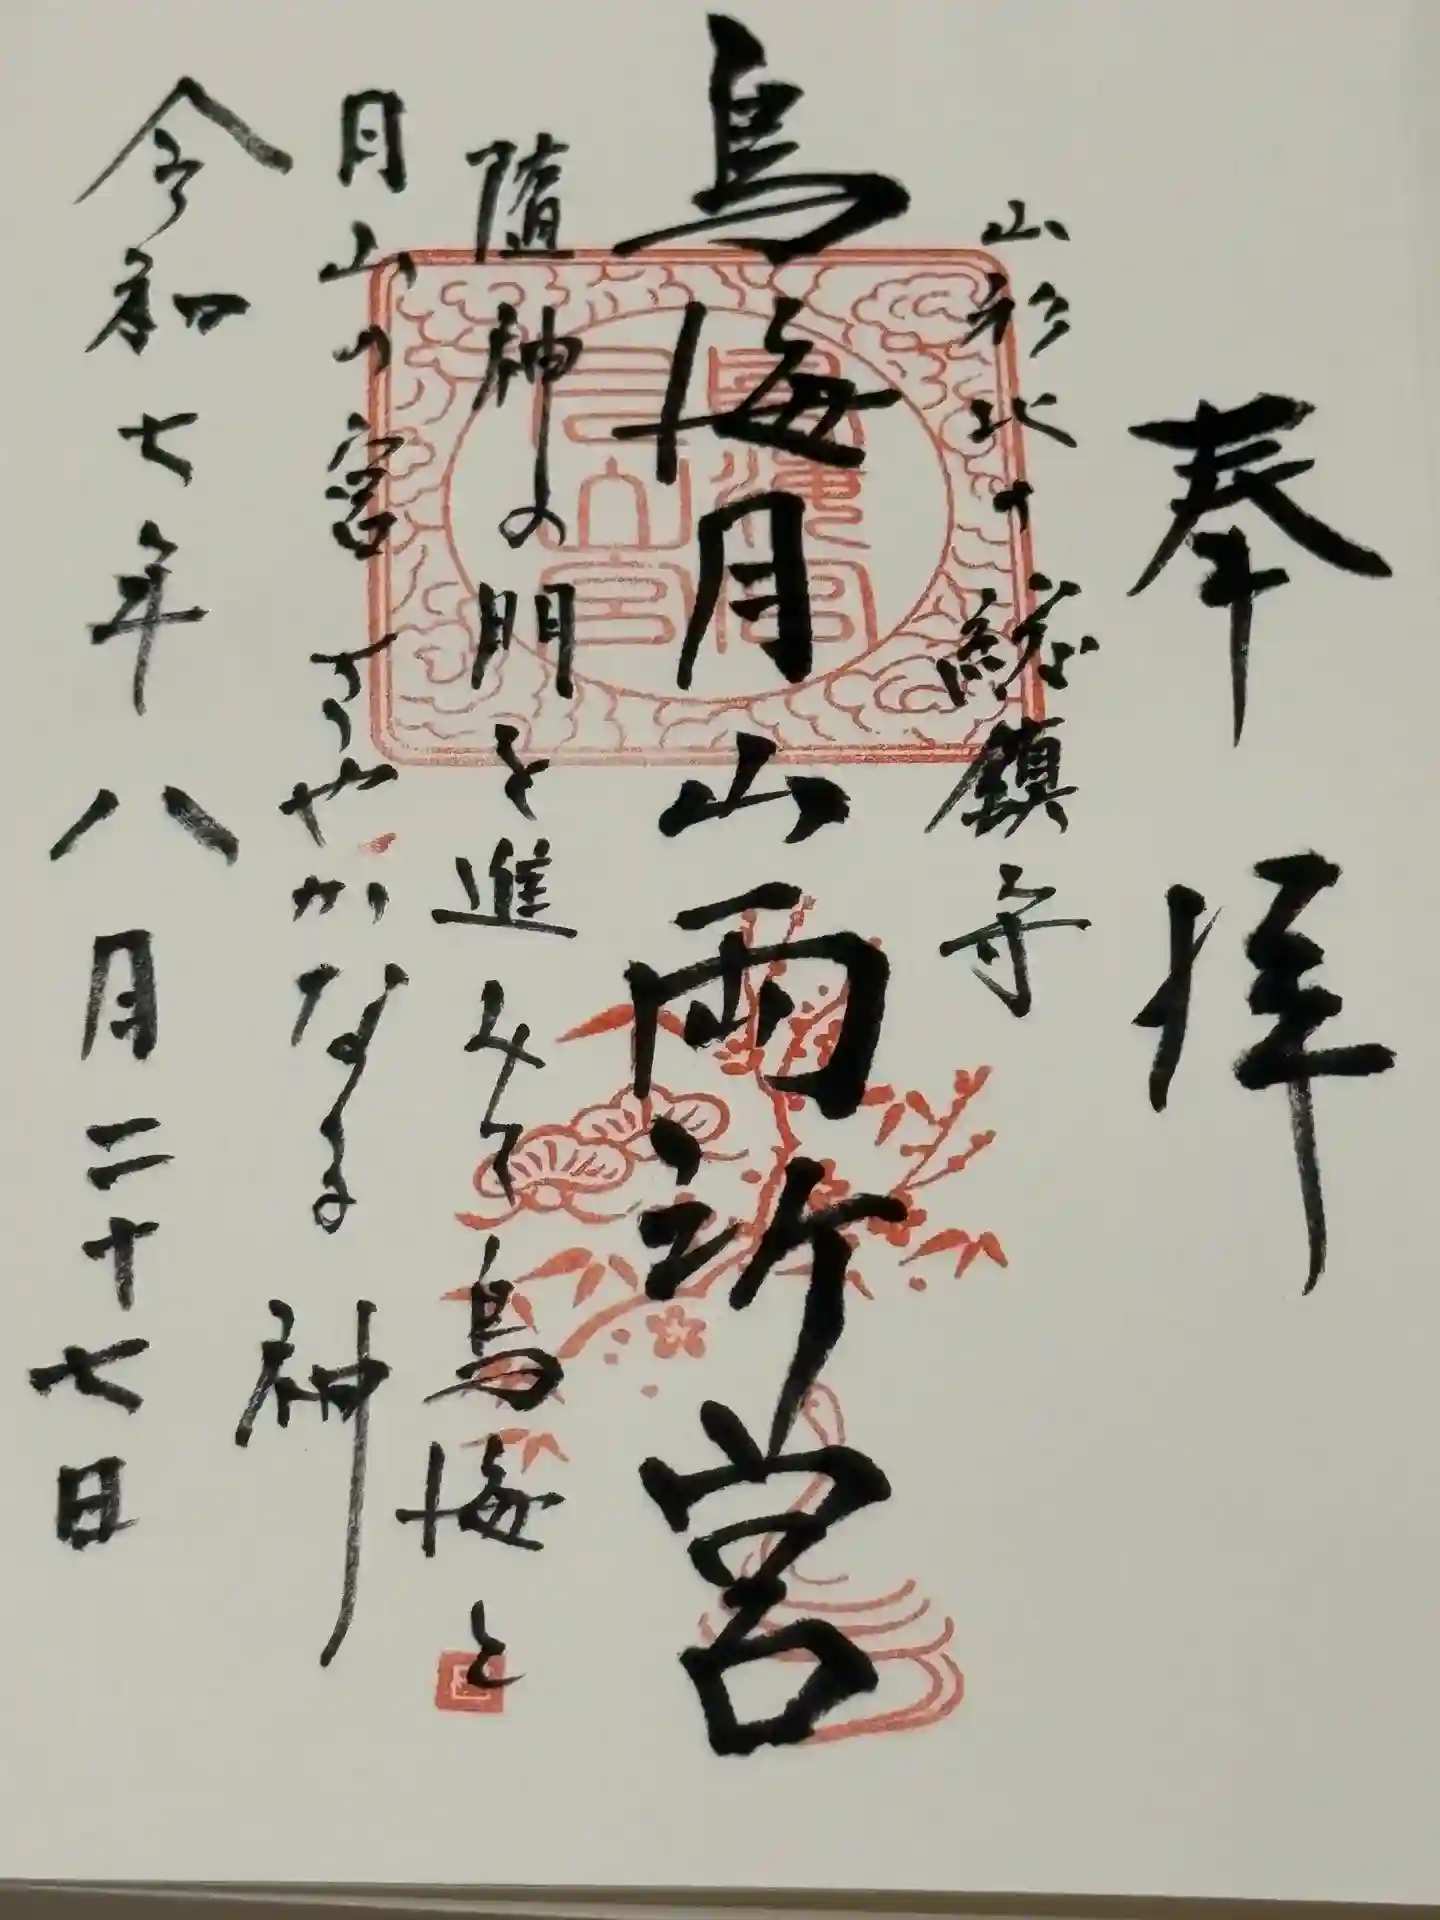 奉拝
山形北方総鎮守
鳥海月山両所宮
随神の門を進みて鳥海と
月山の宮すこやかなる神
令和七年八月二十七日